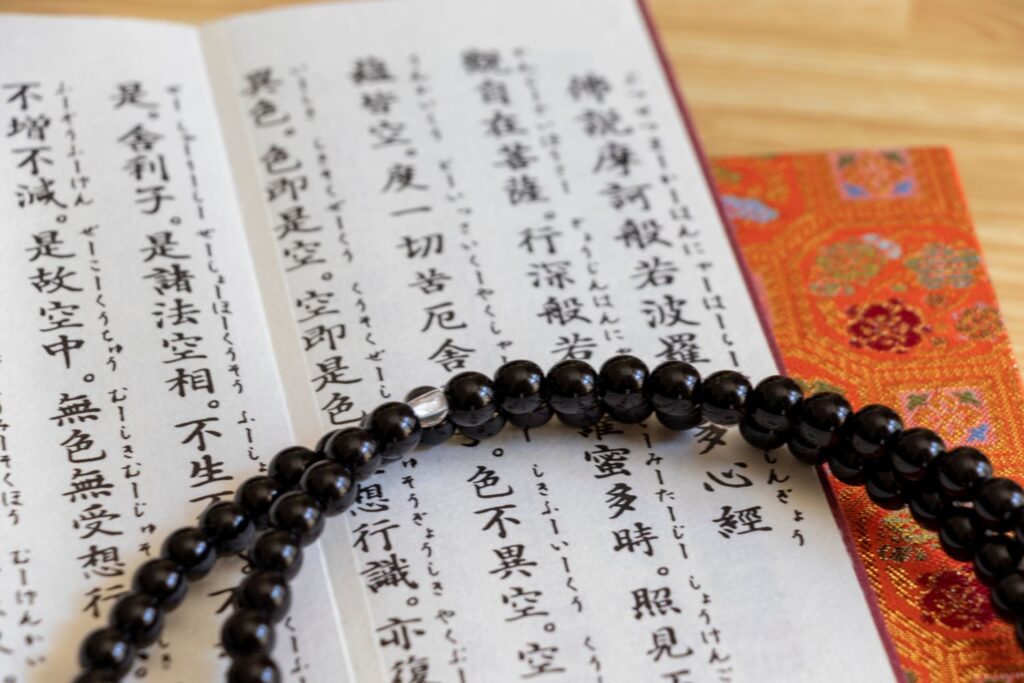 はんにゃーはーらー しんぎょう
佛説摩訶般若波羅 多心經
ぎょうじんはんに みーたーじー しょうけんご
觀自在菩薩。行深般若 蜜多時。照見
どーいっさいくーやくしゃ しきふーいーくう くう
蘊皆空。度一切苦厄舍 色不異空。空
いーしき しきそくぜーくう くうそくぜー そうぎょうしき やくぶー
異色。色即是空。空即是色 想行識。亦復
ぜーしょーほうくうそう ふーしょう
是。舍利子。是諸法空相。不生 不
ふーぞうふーげん ぜーこーくうちゅう むーしきむーじゅそ
不增不減。是故空中。無色無受想行
そくほう むーげんかい